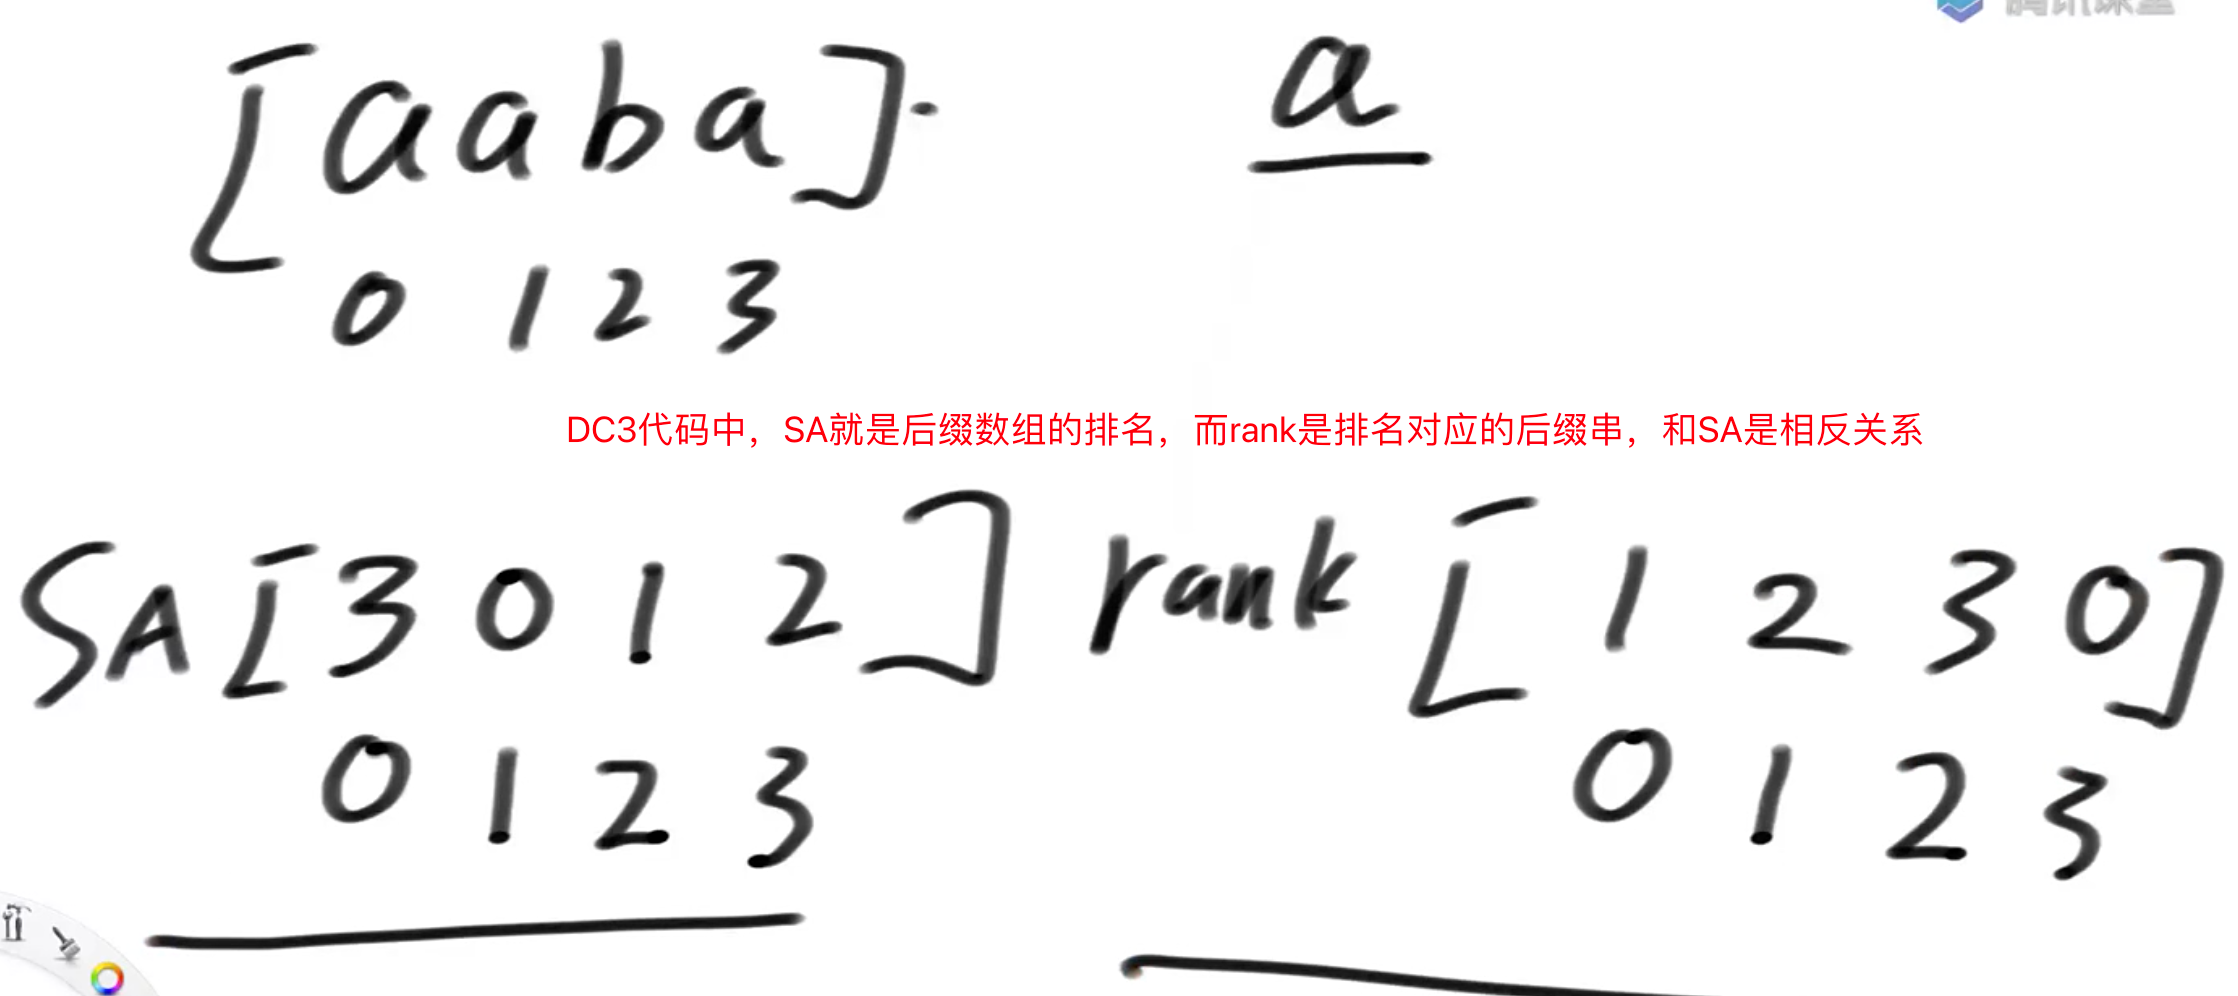 腾讯课堂
[aaba]. a
0 1 2 3
DC3代码中，SA就是后缀数组的排名，而rank是排名对应的后缀串，和SA是相反关系
SA[3 0 1 2] rank[1 2 3 0]
0 1 2 3 0 1 2 3